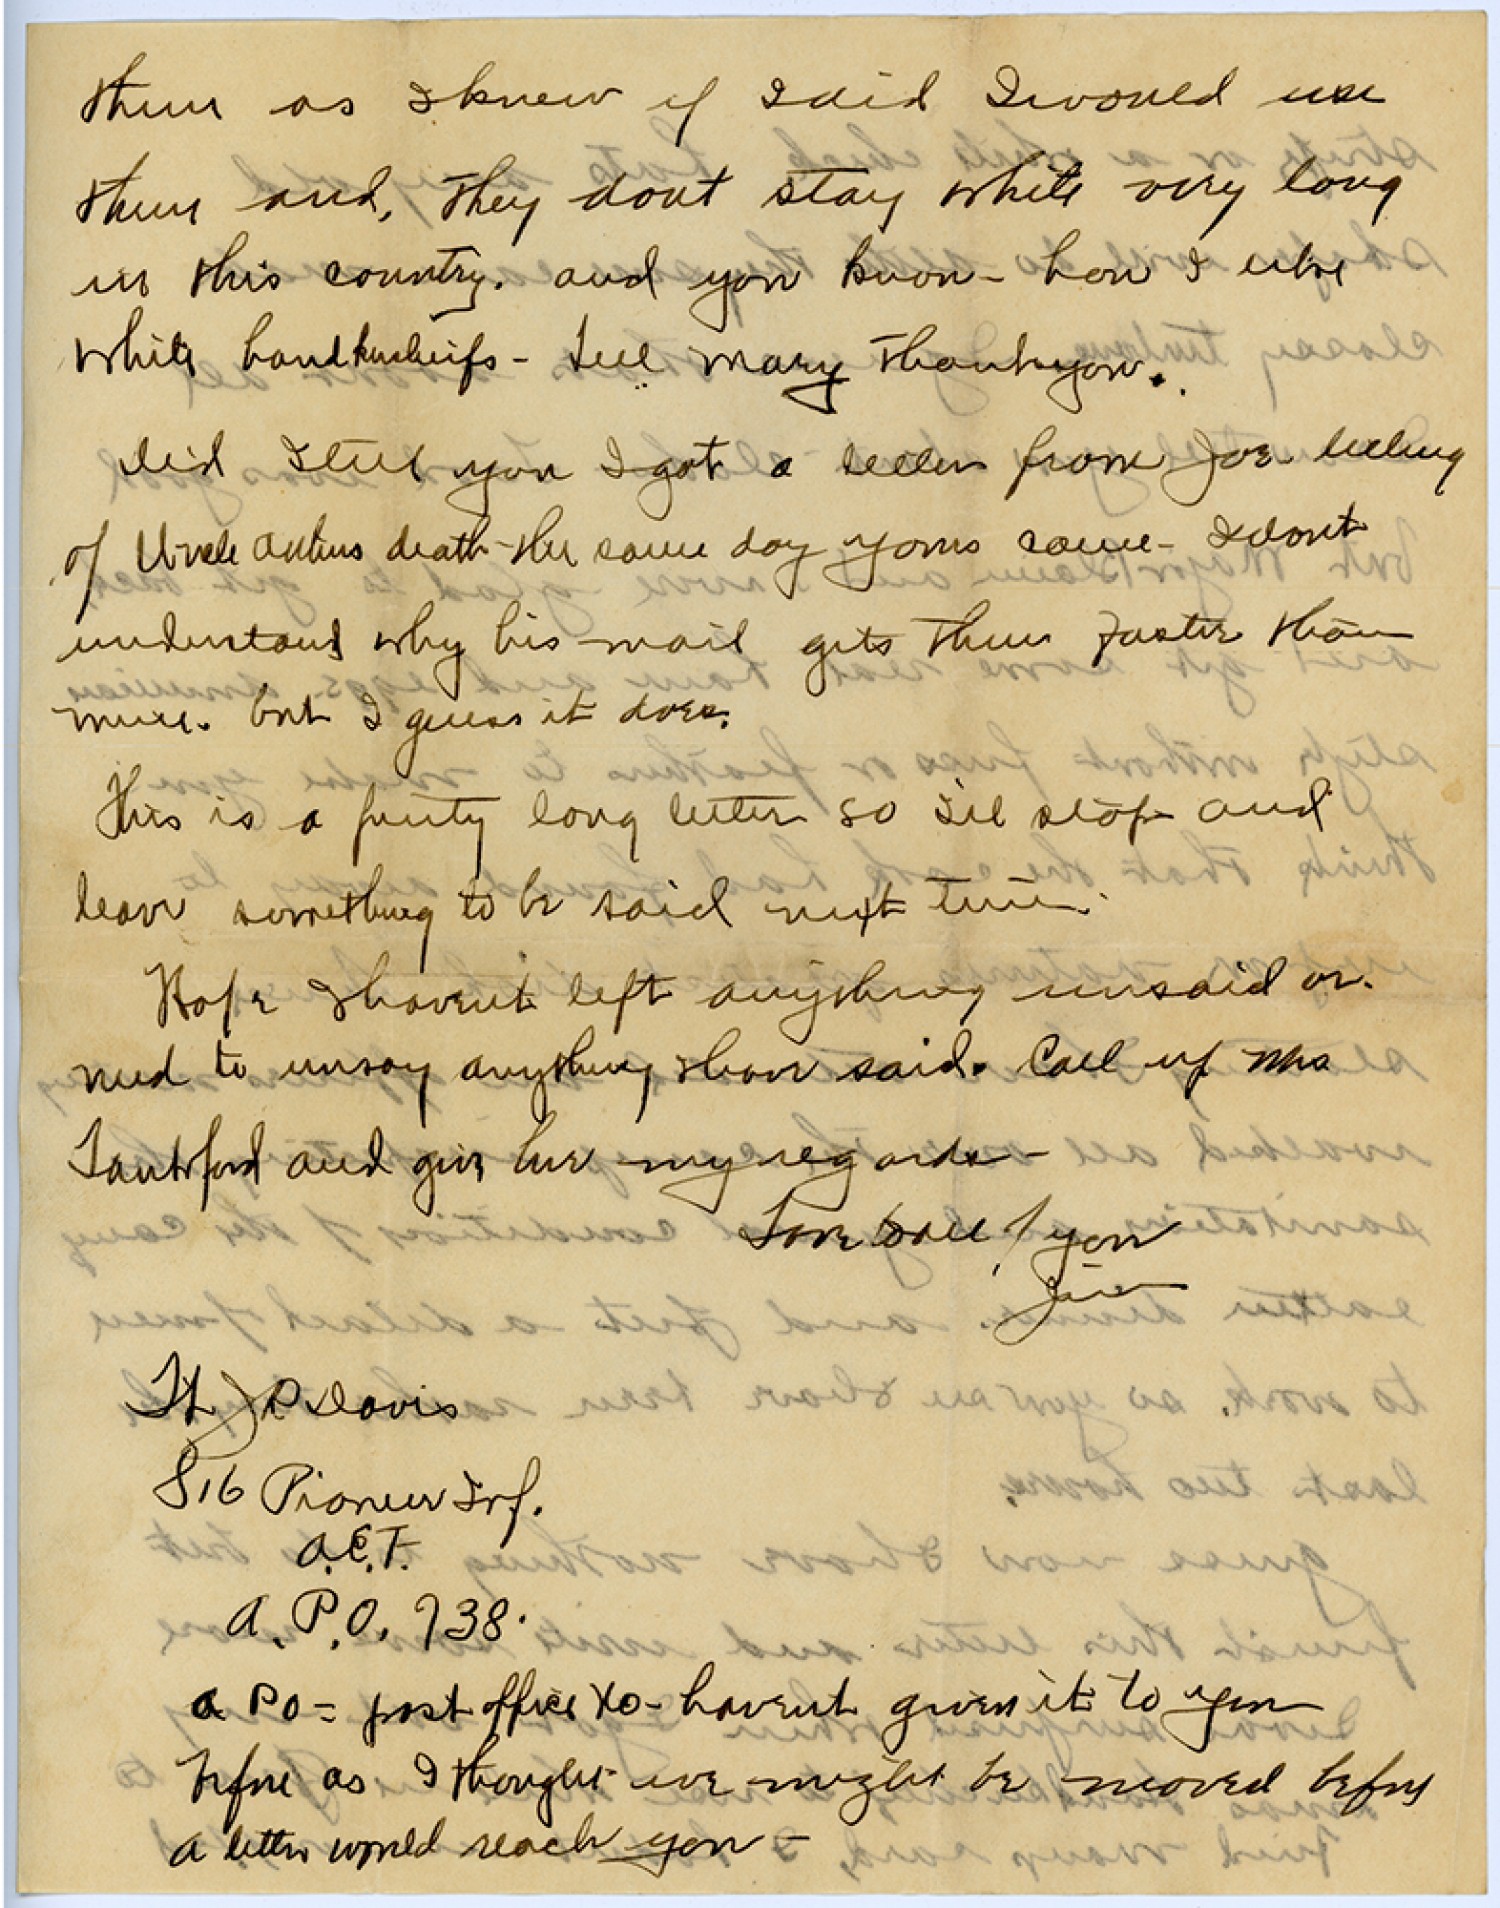 them as I knew if I did I would use
them and, they dont stay white very long
in this country. and you know - how I use
white handkercheifs - Tell Mary Thankyou.
Did I tell you I got a letter from Joe telling
of Uncle death - the same day yours came - I dont
understand why his mail gets there faster than
mine. but I guess it does.
This is a pretty long letter so I'll stop and
leave something to be said next time.
Hope I havent left anything unsaid or
need to unsay anything I have said. Call up Mrs
and give her my regards -
Love to all of you
Lt J P Davis
816 Pioneer Inf.
A.E.F.
A.P.O. 738.
A P O = post office No - havent given it to you
before as I thought we might be moved before
a letter would reach you -